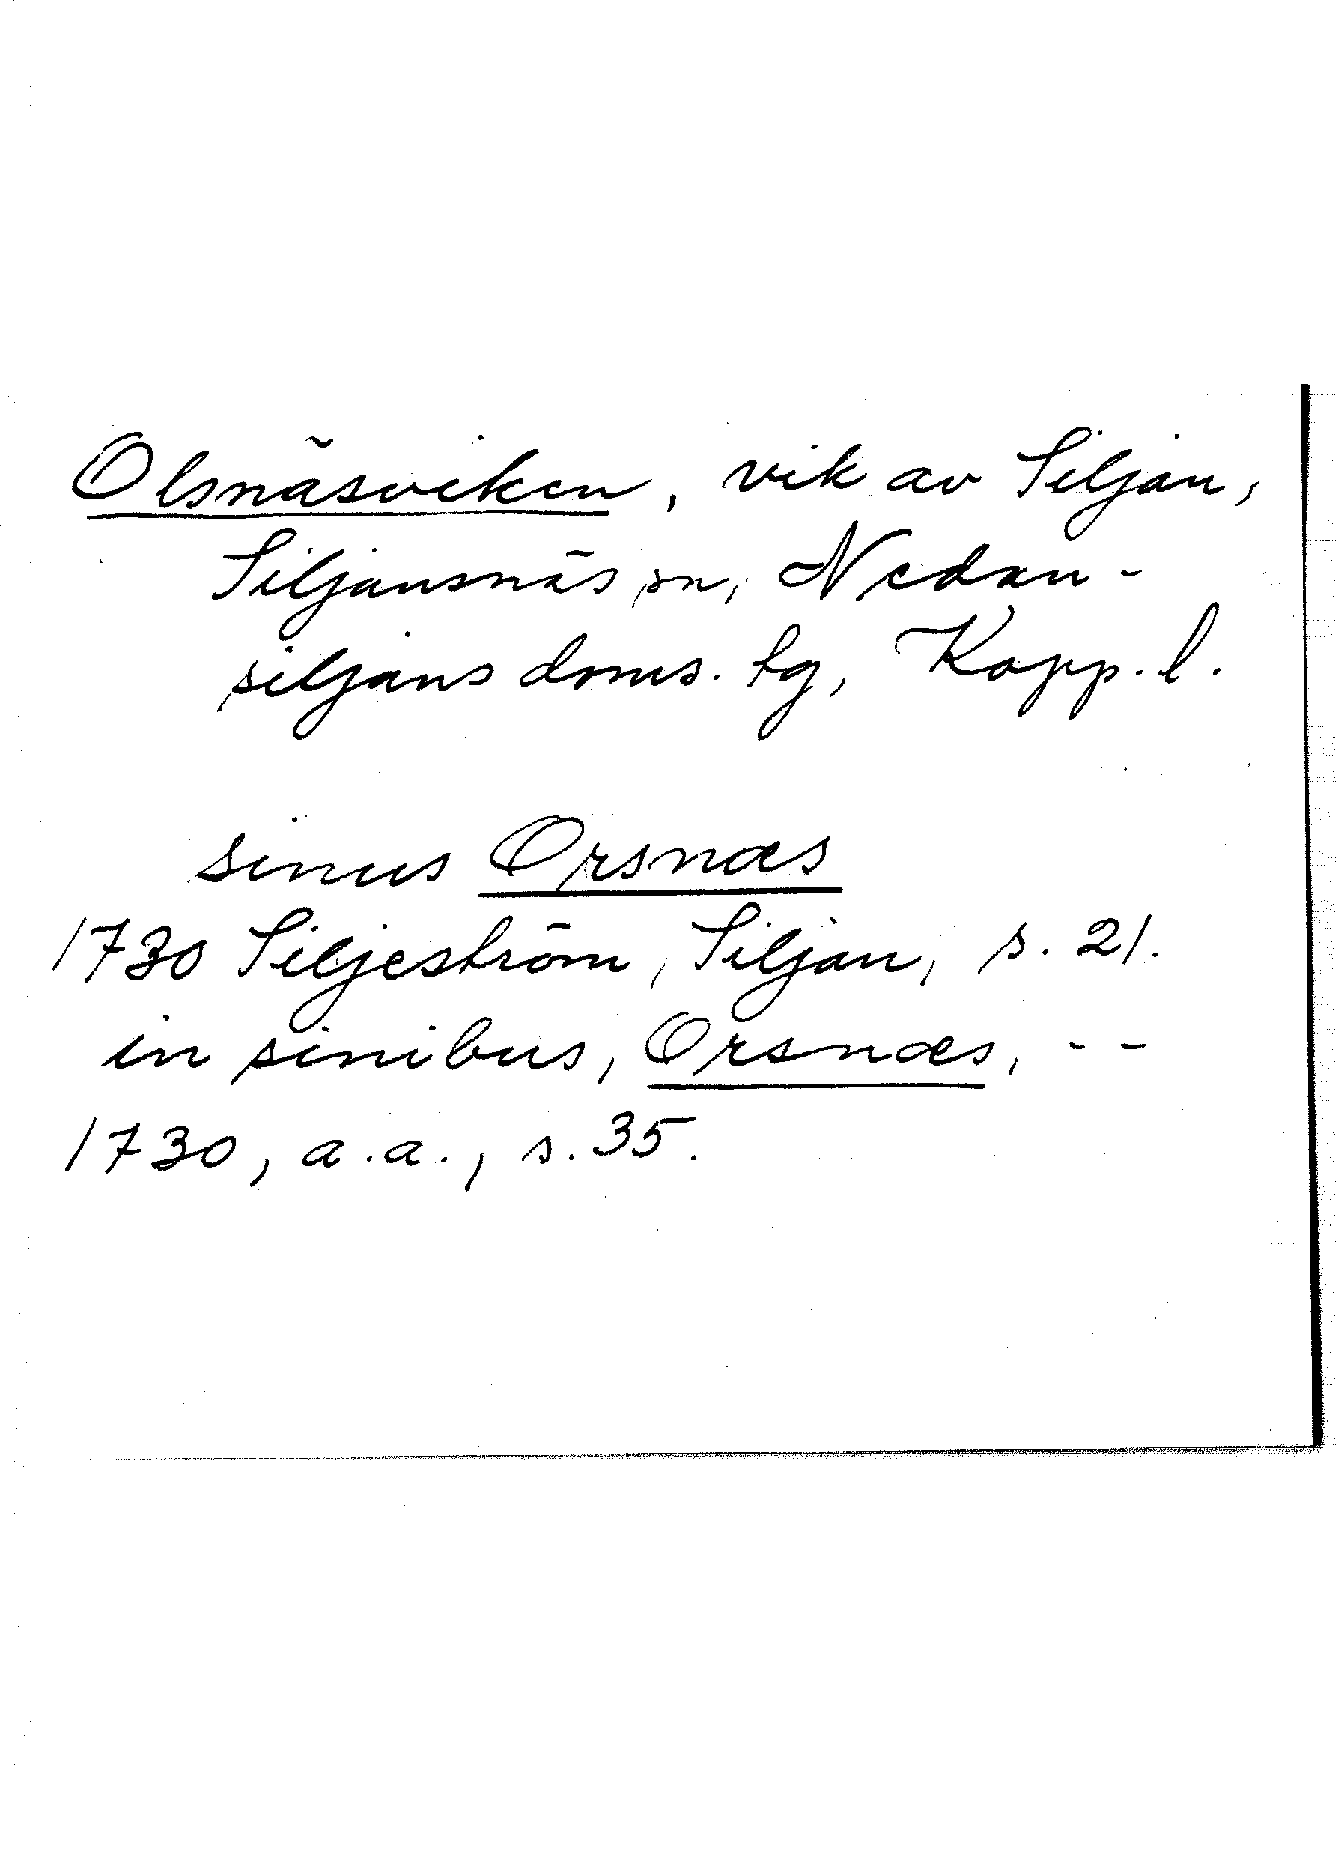 Olsnäsviken, vik av Siljan,
Siljansnäs sn, Nedan-
siljans doms. tg, Kopp. l.
sinus Orsnæs
1730 Siljeström, Siljan, s. 21.
in sinibus, Orsnæs, - -
1730, a.a., s. 35.